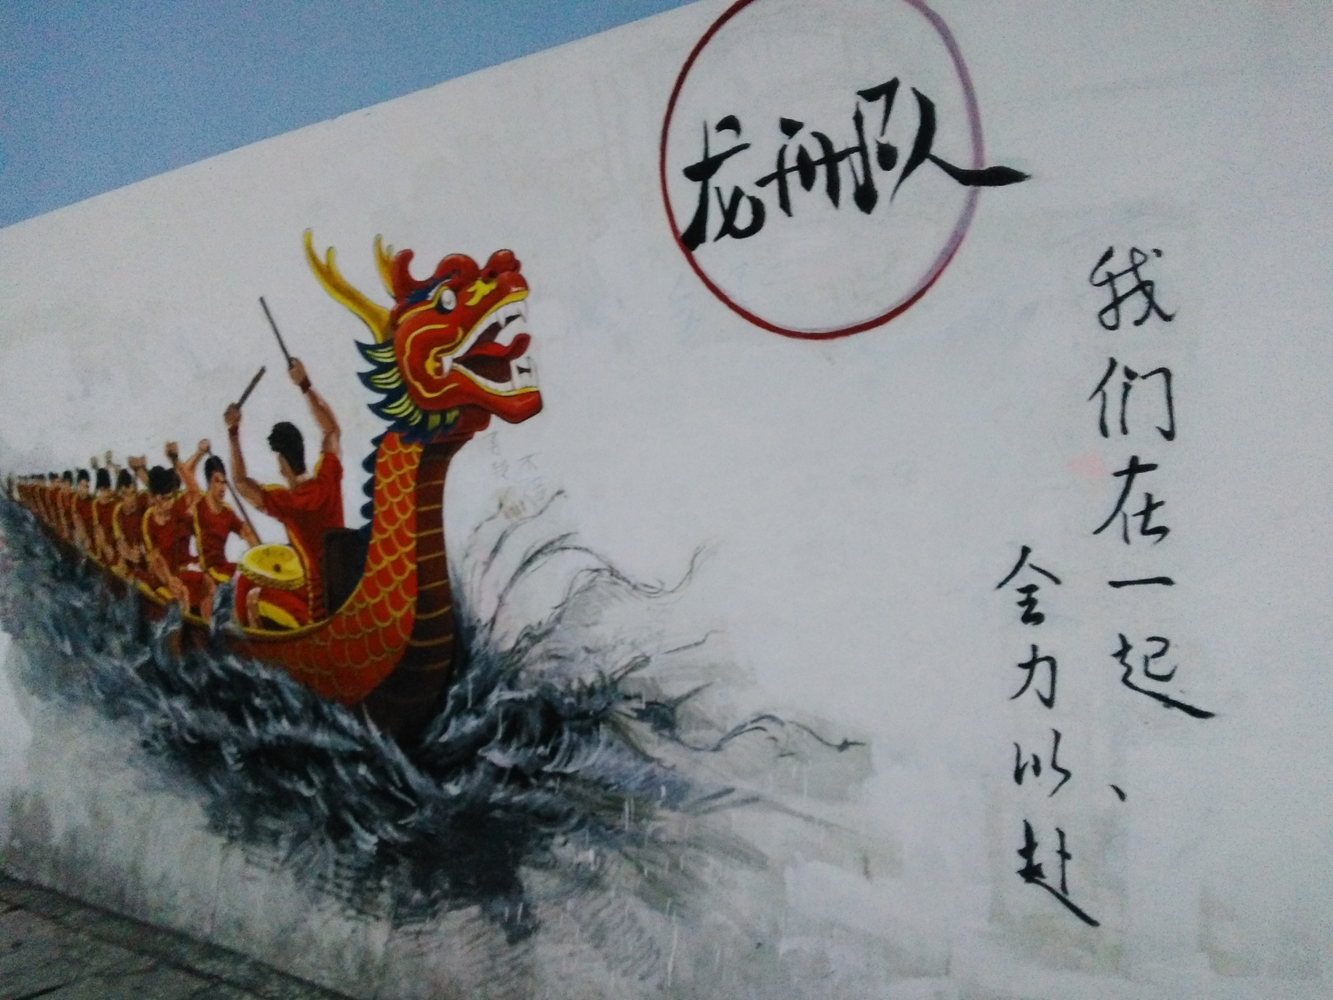 龙舟队
我们在一起、
全力以赴